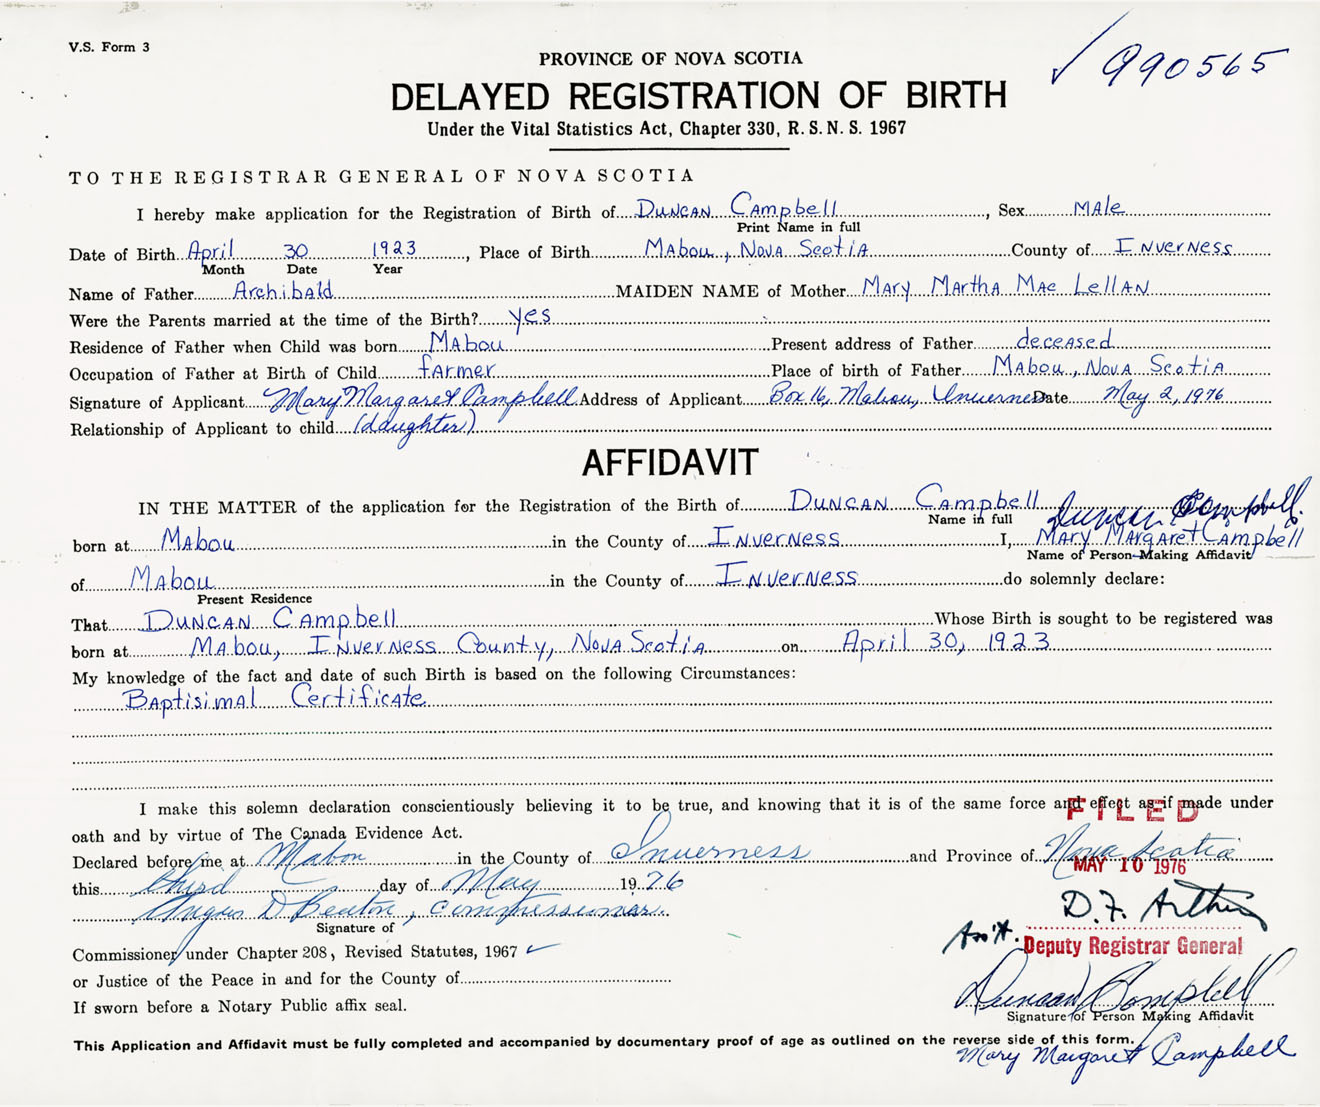 V.S. Form 3
✓ 990565
PROVINCE OF NOVA SCOTIA
DELAYED REGISTRATION OF BIRTH
Under the Vital Statistics Act, Chapter 330, R.S.N.S. 1967
TO THE REGISTRAR GENERAL OF NOVA SCOTIA
I hereby make application for the Registration of Birth of Duncan Campbell, Sex Male
Print Name in full
Date of Birth April 30 1923, Place of Birth Mabou, Nova Scotia County of Inverness
Month Date Year
Name of Father Archibald MAIDEN NAME of Mother Mary Martha Mac Lellan
Were the Parents married at the time of the Birth? yes
Residence of Father when Child was born Mabou Present address of Father deceased
Occupation of Father at Birth of Child farmer Place of birth of Father Mabou, Nova Scotia
Signature of Applicant Mary Margaret Campbell Address of Applicant Box 16, Mabou, Inverness Date May 2, 1976
Relationship of Applicant to child (daughter)
AFFIDAVIT
IN THE MATTER of the application for the Registration of the Birth of Duncan Campbell
Name in full Duncan Campbell.
born at Mabou in the County of Inverness I, Mary Margaret Campbell
Name of Person Making Affidavit
of Mabou in the County of Inverness do solemnly declare:
Present Residence
That Duncan Campbell Whose Birth is sought to be registered was
born at Mabou, Inverness County, Nova Scotia on April 30, 1923
My knowledge of the fact and date of such Birth is based on the following Circumstances:
Baptisimal Certificate
I make this solemn declaration conscientiously believing it to be true, and knowing that it is of the same force and effect as if made under
FILED
oath and by virtue of The Canada Evidence Act.
Declared before me at Mabou in the County of Inverness and Province of Nova Scotia
MAY 10 1976
this third day of May 1976
Angus D Beaton, Commissioner
D.F. Arthur
Signature of
Ass't. Deputy Registrar General
Commissioner under Chapter 208, Revised Statutes, 1967 ✓
or Justice of the Peace in and for the County of
Duncan Campbell
If sworn before a Notary Public affix seal.
Signature of Person Making Affidavit
This Application and Affidavit must be fully completed and accompanied by documentary proof of age as outlined on the reverse side of this form.
Mary Margaret Campbell